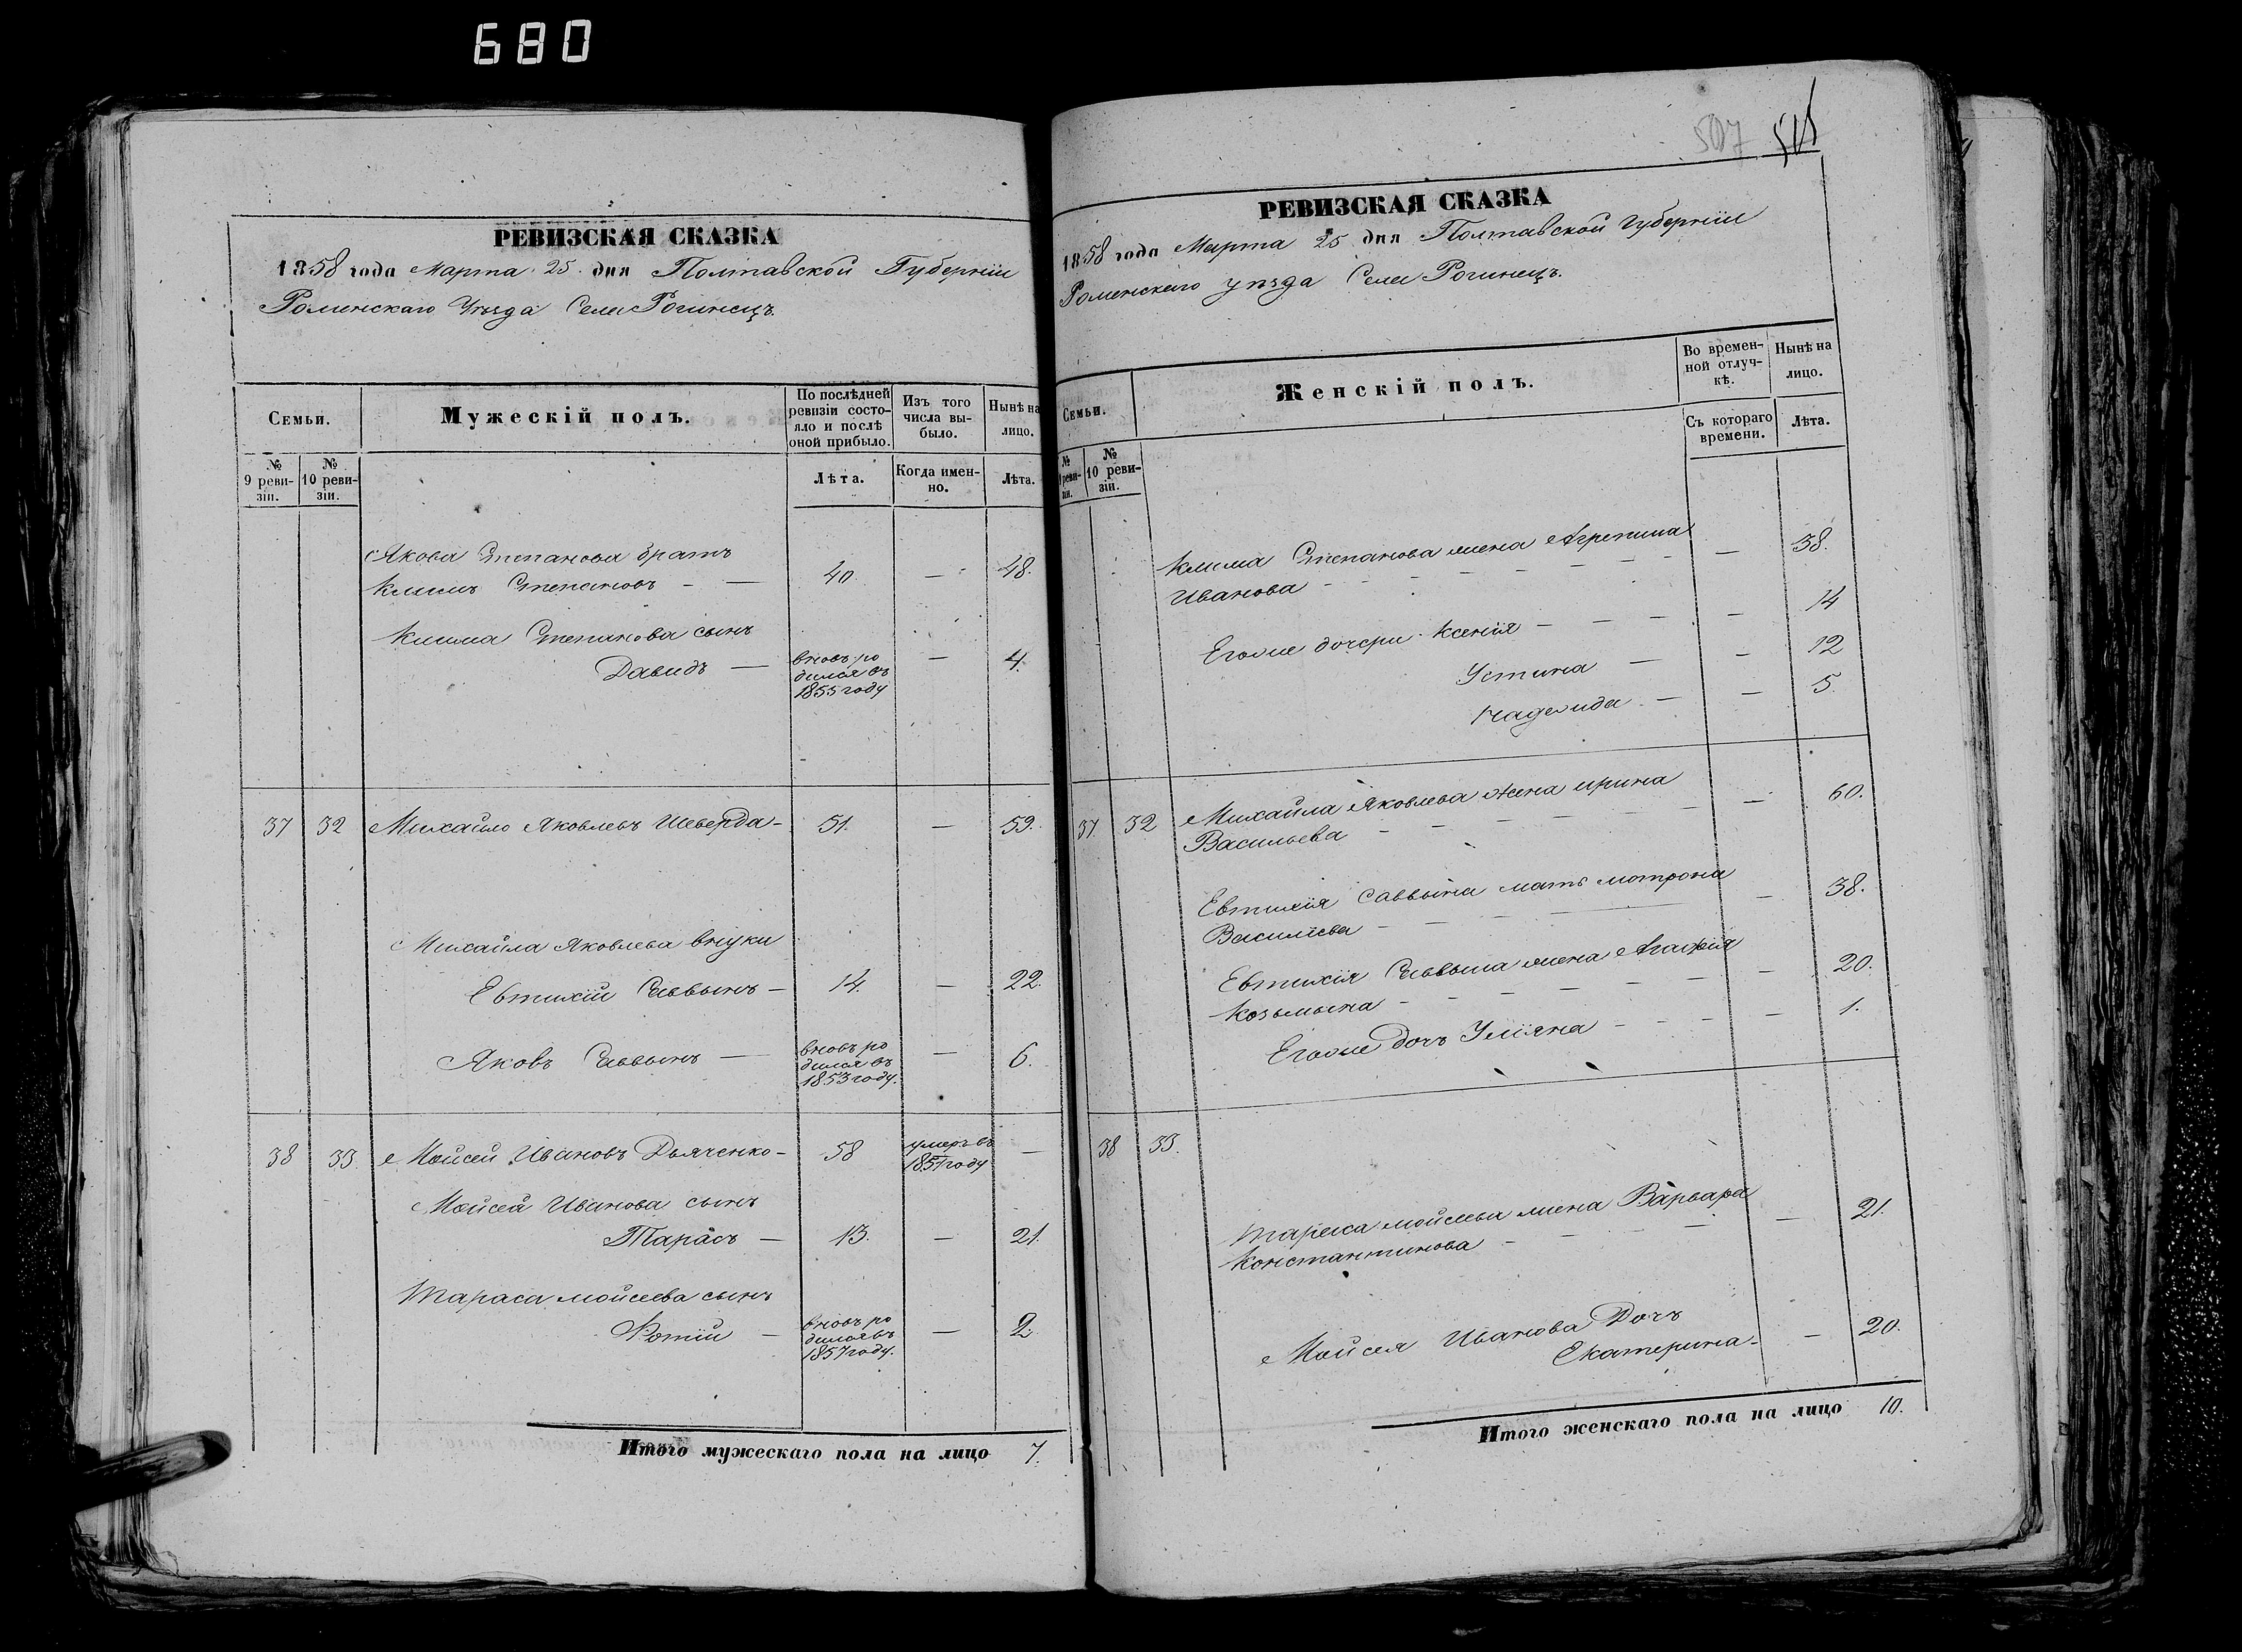 680
РЕВИЗСКАЯ СКАЗКА
1858 года Марта 25 дня Полтавской Губернiи
Роменскаго Уѣзда Села Рогинецъ.
Семьи.
Мужескiй полъ.
По послѣдней ревизiи состояло и послѣ оной прибыло.
Изъ того числа выбыло.
Нынѣ на лицо.
№ 9 ревизiи.
№ 10 ревизiи.
Лѣта.
Когда именно.
Лѣта.
Якова Степанова братъ
Климъ Степановъ — 40 — 48.
Клима Степанова сынъ
Давидъ — вновь родился въ 1855 году — 4.
37 32 Михайло Яковлевъ Шеверда - 51. — 59.
Михайла Яковлева внуки
Евтихiй Саввынъ — 14. — 22.
Яковъ Саввынъ — вновь родился въ 1853 году. — 6.
38 33. Мойсей Ивановъ Дьяченко - 58 умеръ въ 1851 году —
Мойсея Иванова сынъ
Тарасъ — 13. — 21.
Тараса Мойсеева сынъ
Фотiй — вновь родился въ 1857 году. — 2
Итого мужескаго пола на лицо 7.
507
РЕВИЗСКАЯ СКАЗКА
1858 года Марта 25 дня Полтавской Губернiи
Роменскаго уѣзда Села Рогинецъ.
Семьи.
Женскiй полъ.
Во временной отлучкѣ.
Нынѣ на лицо.
№ 9 ревизiи.
№ 10 ревизiи.
Съ котораго времени.
Лѣта.
Клима Степанова жена Агрепина
Иванова — 38.
Егоже дочери Ксенiя — 14
Устина — 12
Надежида — 5.
37. 32 Михайла Яковлева жена Ирина
Васильева — 60.
Евтихiя Саввына мать Мотрона
Василiева — 38.
Евтихiя Саввына жена Агафiя
Козьмына — 20.
Егоже дочь Улiяна — 1.
38 33.
Тараса Мойсеева жена Варвара
Константинова — 21.
Мойсея Иванова Дочь
Екатерина - — 20.
Итого женскаго пола на лицо 10.